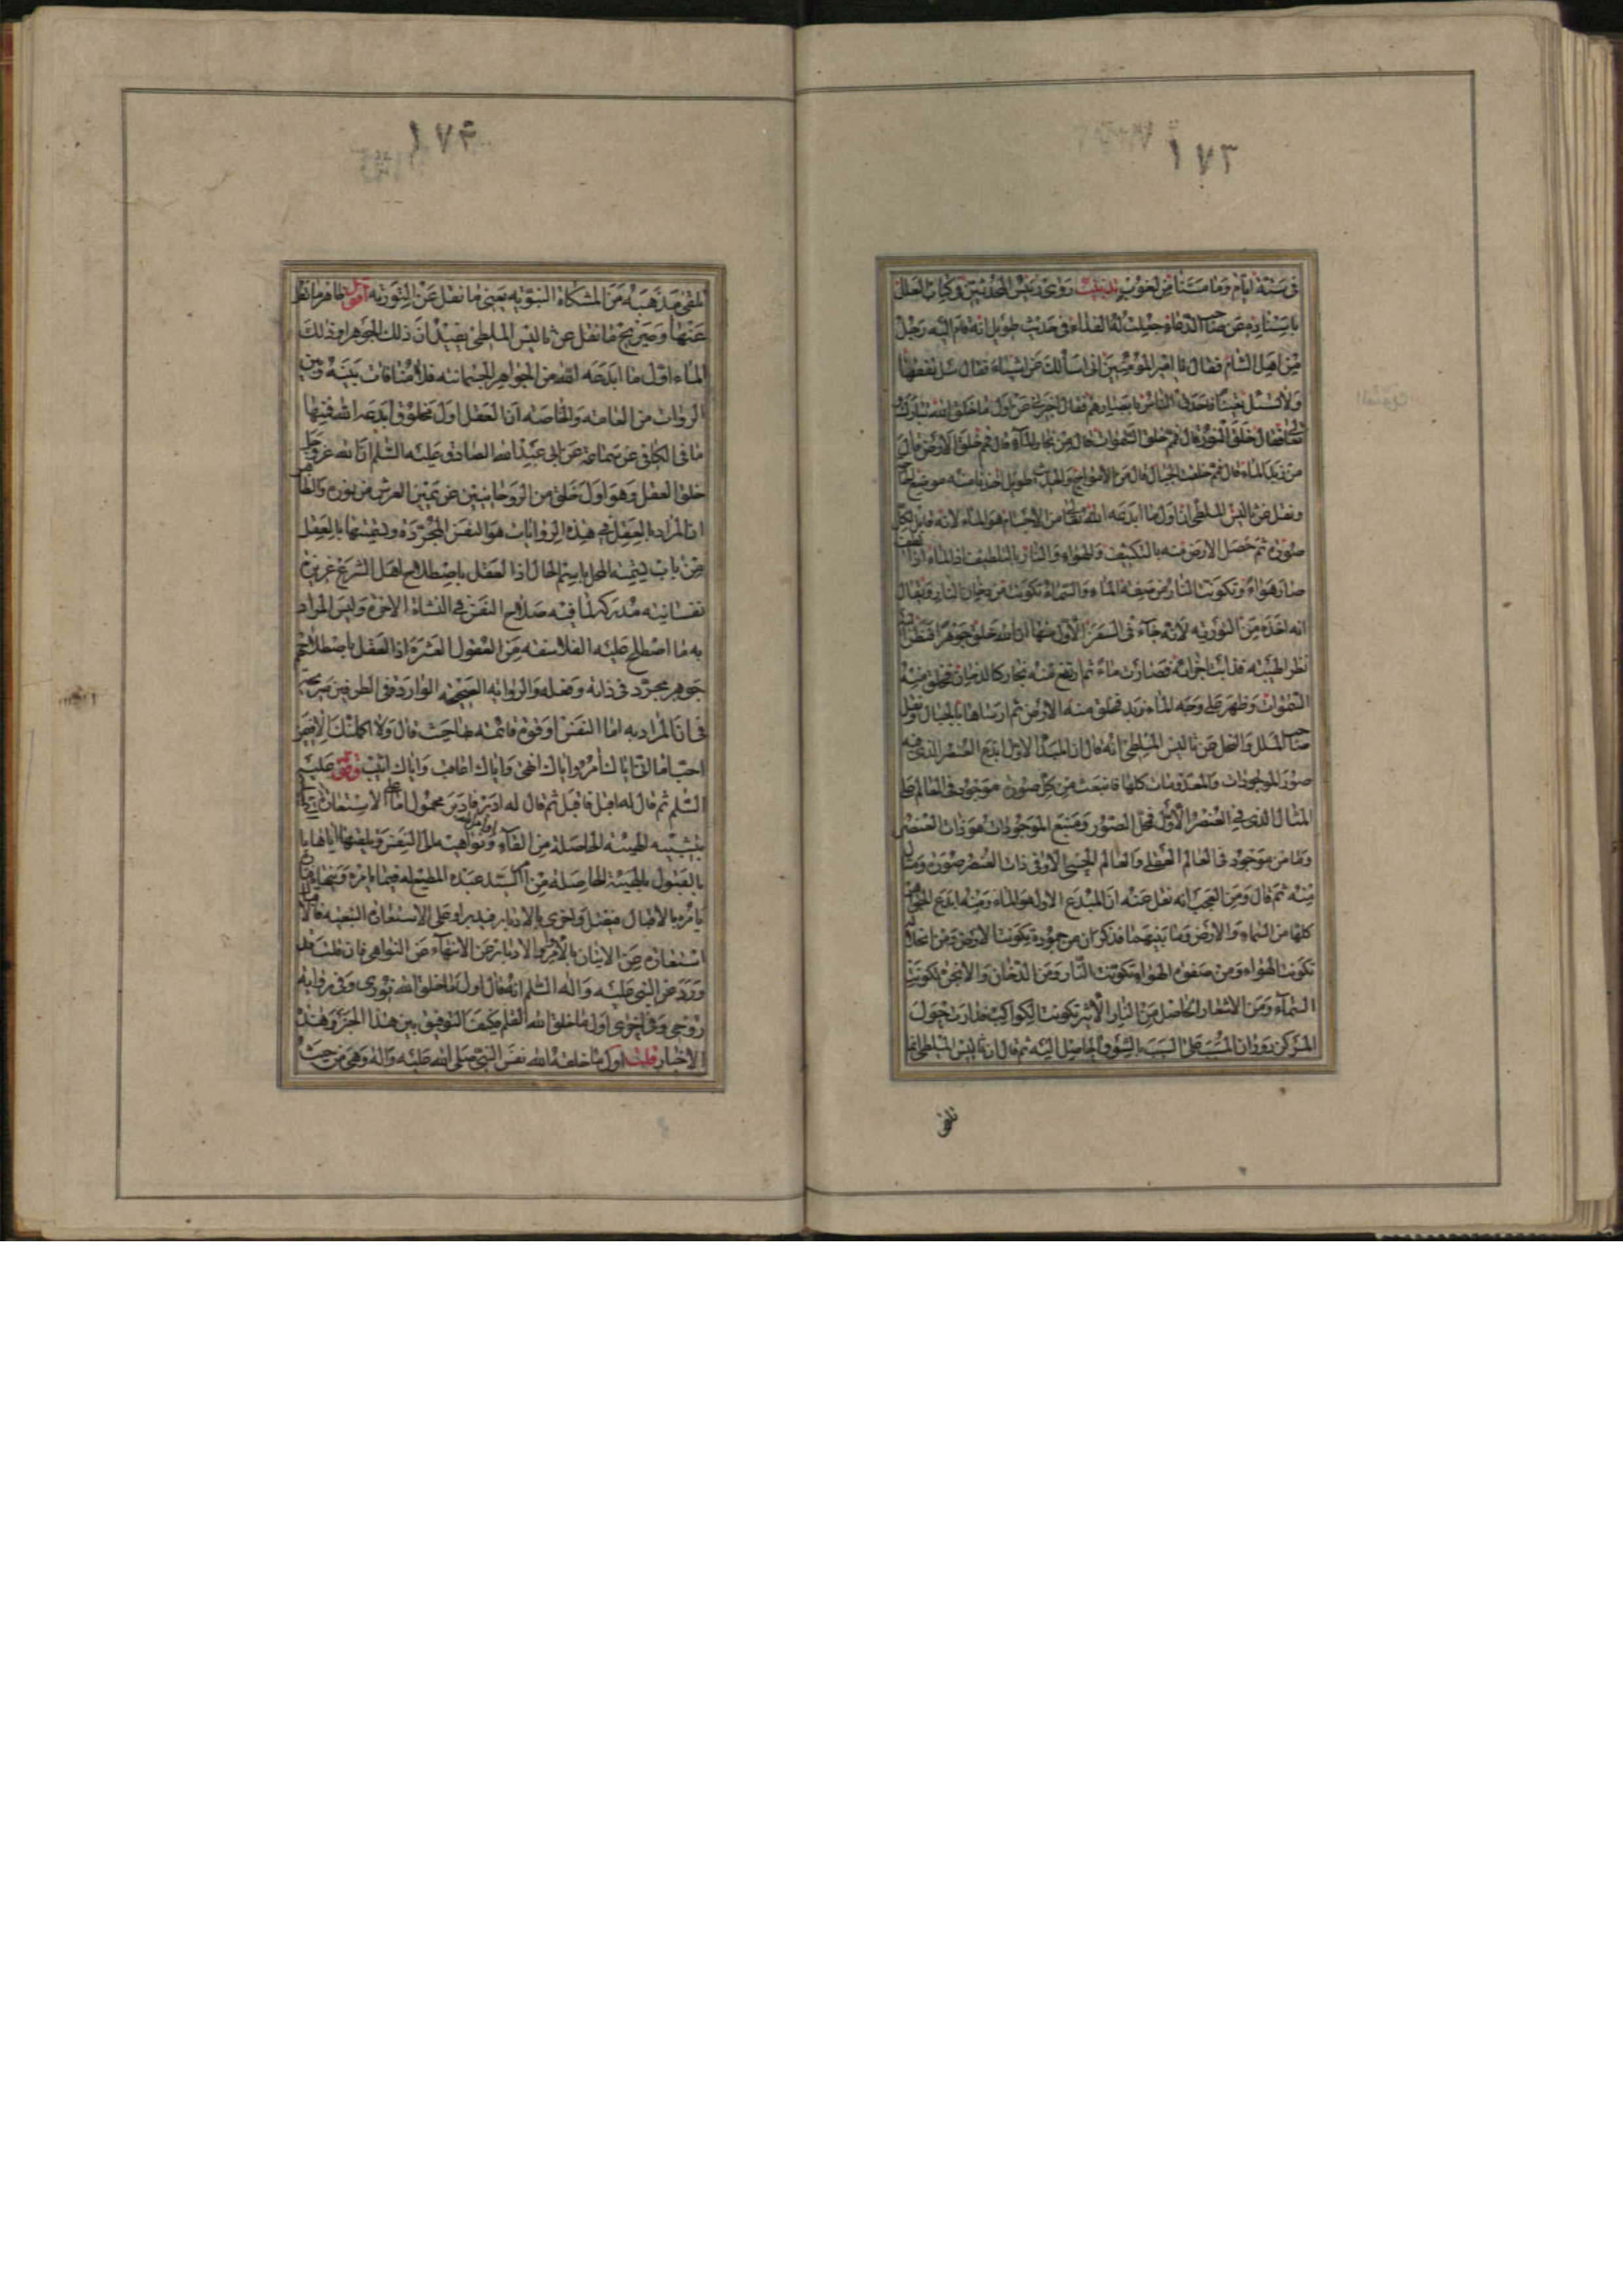 ١٧٣
فى ستة ايام وما مسنا من لغوب تذنيب روى رئيس المحدثين فى كتاب العلل
باسناده عن صاحب الدعاء جعلت له الفداء فى حديث طويل انه قام اليه رجل
من اهل الشام فقال يا امير المؤمنين انى اسألك عن اشياء فقال سل تفقها
ولا تسئل تعنتا فاحدق الناس بابصارهم فقال اخبرنى عن اول ما خلق الله تبارك و
تعالى فقال خلق النور قال فمم خلق السموات قال من بخار الماء قال فمم خلق الارض قال
من زبد الماء قال فمم خلقت الجبال قال من الامواج والحديث طويل اخذنا منه موضع الحاجة
ونقل عن ثاليس الملطى ان اول ما ابدعه الله تعالى من الاجسام هو الماء لانه قابل لكل
صورة ثم حصل الارض منه بالتكثيف والهواء والنار بالتلطيف اذ الماء اذا لطف
صار هواء وتكونت النار من صفوة الماء والسماء تكونت من دخان النار ويقال
انه اخذه من التورية لانه جاء فى السفر الاول منها ان الله خلق جوهرا فنظر اليه
نظر الهيبة فذابت اجزائه فصارت ماء ثم ارتفع منه بخار كالدخان فخلق منه
السموات وظهر على وجه الماء زبد فخلق منه الارض ثم ارساها بالجبال ونقل
صاحب الملل والنحل عن ثاليس الملطى انه قال ان المبدأ الاول ابدع العنصر الذى فيه
صور الموجودات والمعدومات كلها فانبعث من كل صورة موجود فى العالم على
المثال الذى فى العنصر الاول فمحل الصور ومنبع الموجودات هو ذات العنصر
وما من موجود فى العالم العقلى والعالم الحسى الا وفى ذات العنصر صورة ومثال
منه ثم قال ومن العجب انه نقل عنه ان المبدع الاول هو الماء ومنه ابدع الجواهر
كلها من السماء والارض وما بينهما فذكر ان من جموده تكونت الارض ومن انحلاله
تكونت الهواء ومن صفوة الهواء تكونت النار ومن الدخان والابخرة تكونت
السماء ومن الاشتعال الحاصل من النار الاثير تكونت الكواكب فدارت حول
المركز دوران المسبب على السبب بالشوق الحاصل اليه ثم قال ان ثاليس الملطى انما
تلقى
١٧٤
تلقى مذهبه من المشكاة النبوية يعنى ما نقل عن التورية اقول ظاهر ما نقل
عنها وصريح ما نقل عن ثاليس الملطى يفيد ان ذلك الجوهر او ذلك
الماء اول ما ابدعه الله من الجواهر الجسمانية فلا منافات بينه وبين
الروات من العامة والخاصة ان العقل اول مخلوق ابدعه الله فمنها
ما فى الكافى عن سماعة عن ابى عبد الله الصادق عليه السلم ان الله عز وجل
خلق العقل وهو اول خلق من الروحانيين عن يمين العرش من نوره والظاهر
ان المراد بالعقل فى هذه الروايات هو النفس المجردة وتسميتها بالعقل
من باب تسمية المحل باسم الحال اذ العقل باصطلاح اهل الشرع غريزة
نفسانية مدركة لما فيه صلاح النفس فى النشاة الاخرة وليس المراد
به ما اصطلح عليه الفلاسفة من العقول العشرة اذ العقل باصطلاحهم
جوهر مجرد فى ذاته وفعله والرواية الصحيحة الواردة فى الطرفين صريحة
فى ان المراد به اما النفس او قوة قائمة بها حيث قال ولا اكملتك الا فيمن
احب اما انى اياك أمر واياك انهى واياك اعاقب واياك اثيب وقوله عليه
السلم ثم قال له اقبل فاقبل ثم قال له ادبر فادبر محمول اما على الاستعارة
بتشبيه الهيئة الحاصلة من القاء اوامره ونواهيه الى النفس وتلقيها اياها
بالقبول بالهيئة الحاصلة من السيد عبده المطيع له فيما يامره وينهاه
يامره بالاقبال فيقبل واخرى بالادبار فيدبر او على الاستعارة التبعية فالاقبال
استعارة عن الاتيان بالاوامر والادبار عن الانتهاء عن النواهى فان قلت قد
وورد عن النبى عليه واله السلم انه قال اول ما خلق الله نورى وفى رواية
روحى وفى اخرى اول ما خلق الله القلم فكيف التوفيق بين هذا الخبر وهذه
الاخبار قلت اول ما خلقه الله نفس النبى صلى الله عليه واله وهى من حيث